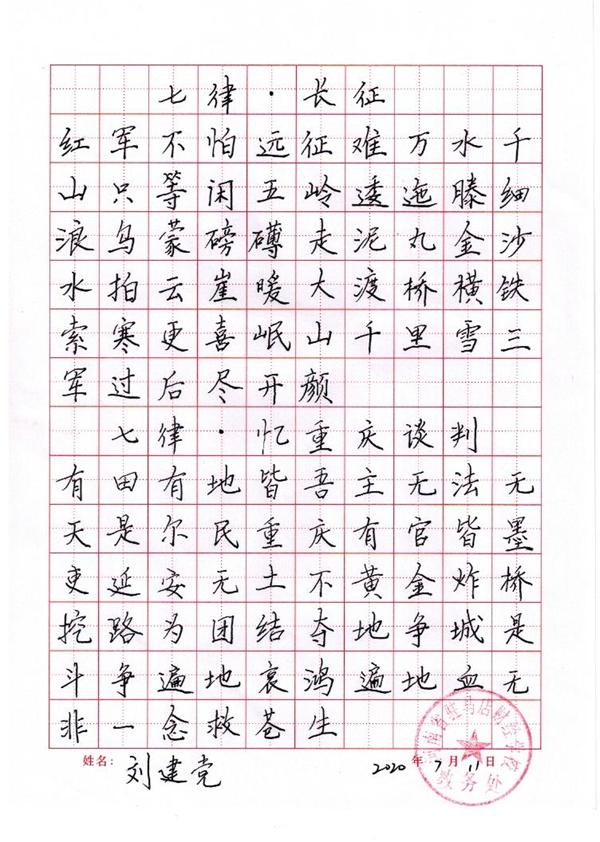 七律·长征
红军不怕远征难万水千
山只等闲五岭逶迤滕细
浪乌蒙磅礴走泥丸金沙
水拍云崖暖大渡桥横铁
索寒更喜岷山千里雪三
军过后尽开颜
七律·忆重庆谈判
有田有地皆吾主无法无
天是尔民重庆有官皆墨
吏延安无土不黄金炸桥
挖路为团结夺地争城是
斗争遍地哀鸿遍地血无
非一念救苍生
姓名：刘建党 2020年7月11日
河南省驻马店财经学校
教务处